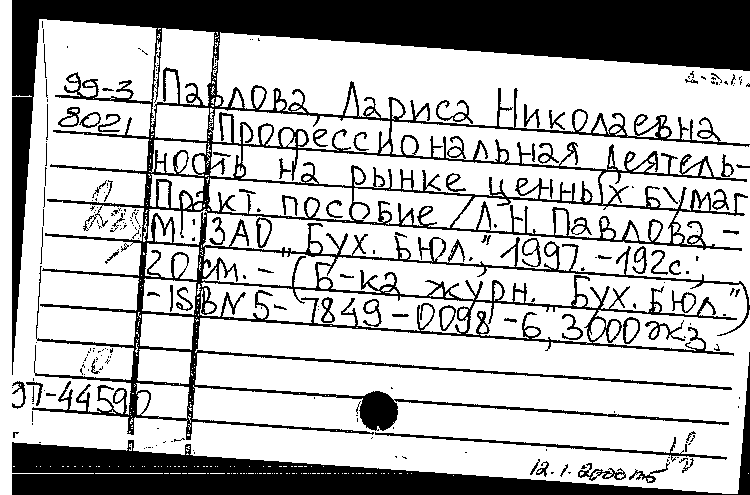 99-3 Павлова, Лариса Николаевна
8021 Профессиональная деятель-
ность на рынке ценных бумаг
Практ. пособие / Л. Н. Павлова. -
М.: ЗАО „Бух. Бюл.", 1997. - 192с.;
20 см. - (Б-ка журн. „Бух. Бюл.")
- ISBN 5-7849-0098-6, 3000 экз.
10
ЭП-44590
12.1.2000